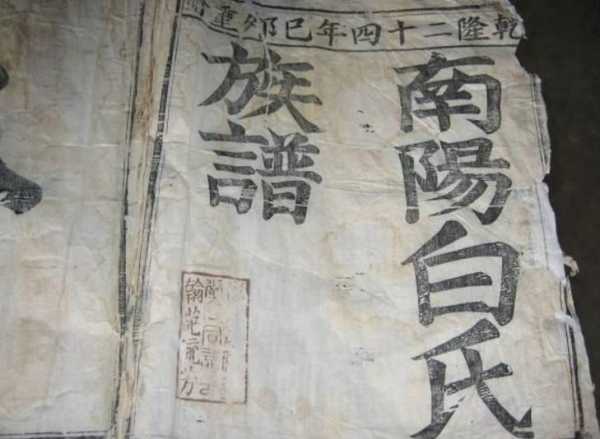 乾隆二十四年巳夘重
南陽白氏
族譜